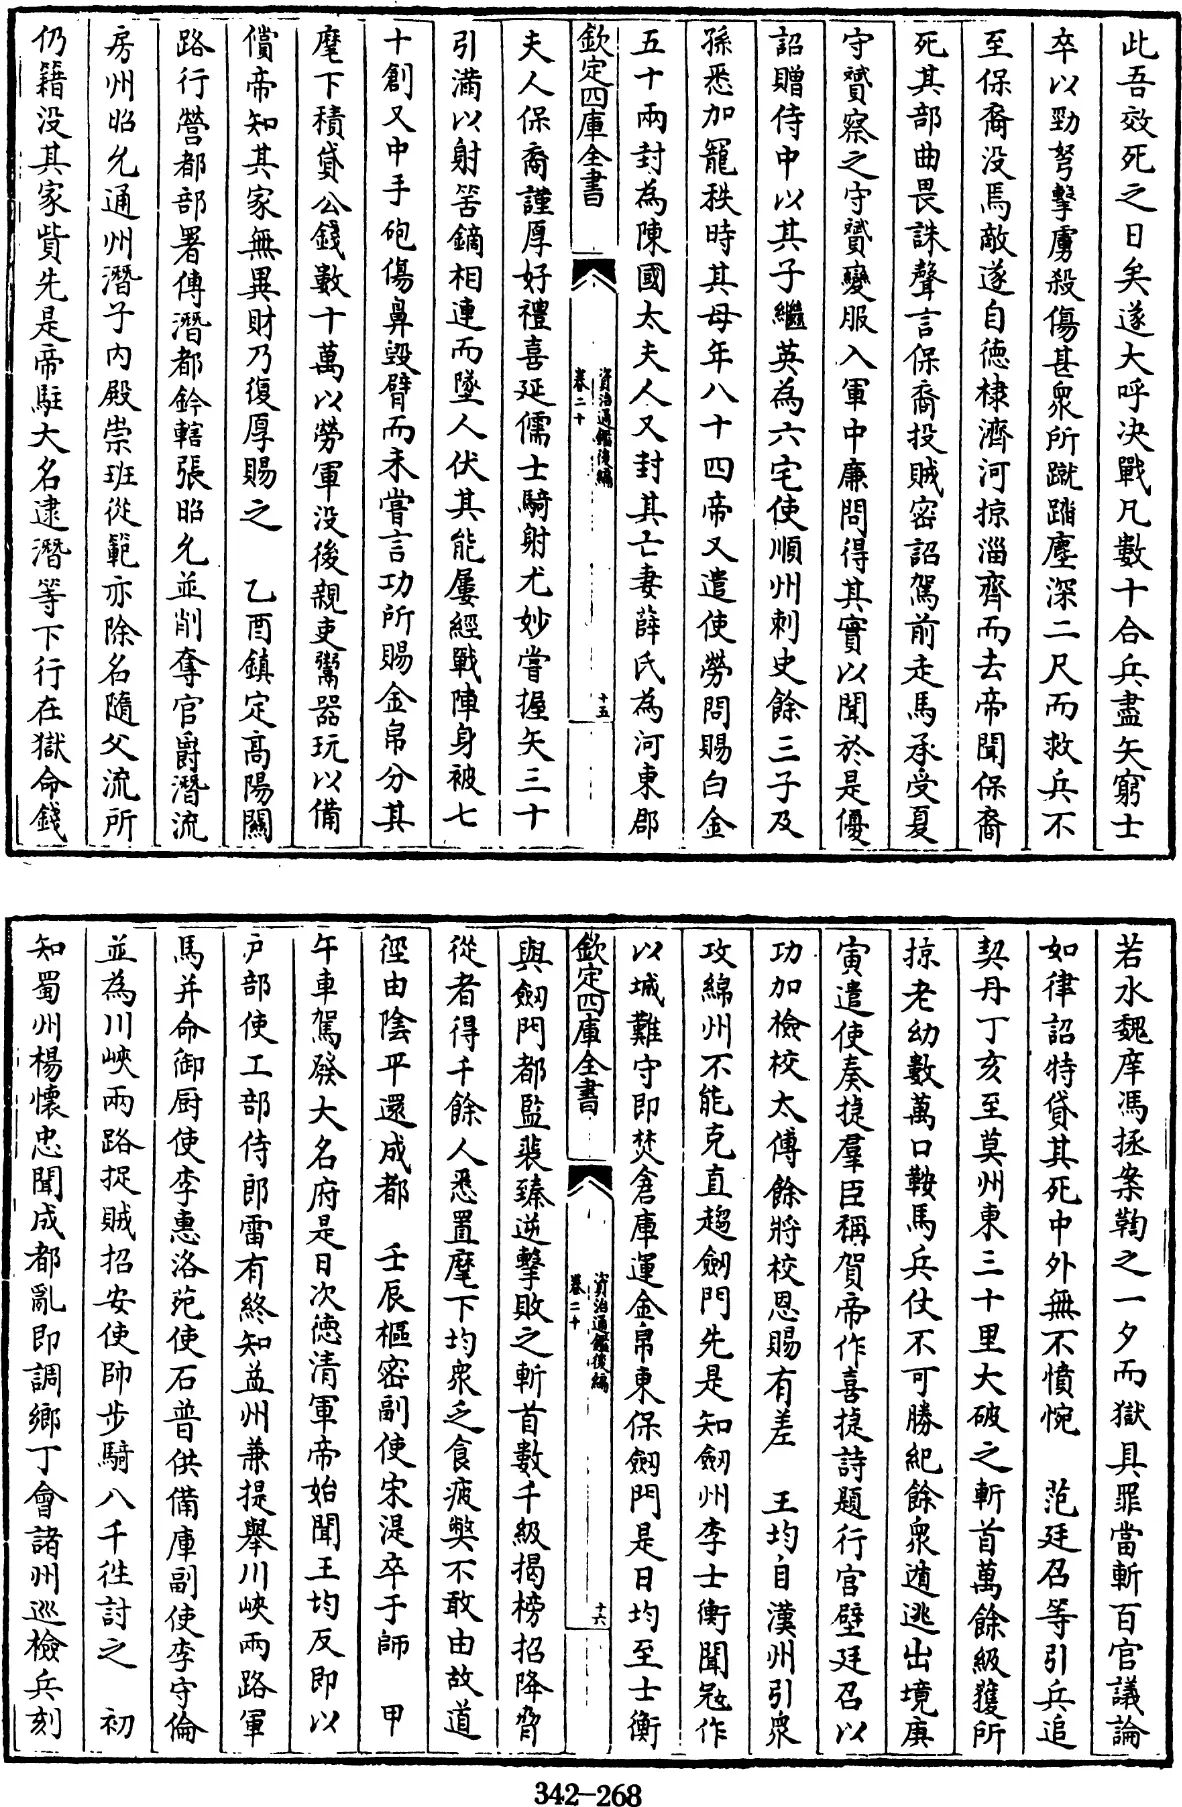 此吾效死之日矣遂大呼决戰凡數十合兵盡矢窮士
卒以勁弩擊虜殺傷甚衆所蹴踏塵深二尺而救兵不
至保裔没焉敵遂自徳棣濟河掠淄齊而去帝聞保裔
死其部曲畏誅聲言保裔投賊密詔駕前走馬承受夏
守贇察之守贇變服入軍中廉問得其實以聞於是優
詔贈侍中以其子繼英為六宅使順州刺史餘三子及
孫悉加寵秩時其母年八十四帝又遣使勞問賜白金
五十兩封為陳國太夫人又封其亡妻薛氏為河東郡
欽定四庫全書
資治通鑑後編
卷二十
十五
夫人保裔謹厚好禮喜延儒士騎射尤妙嘗握矢三十
引滿以射筈鏑相連而墜人伏其能屢經戰陣身被七
十創又中手砲傷鼻毁臂而未嘗言功所賜金帛分其
麾下積貸公錢數十萬以勞軍没後親吏鬻器玩以備
償帝知其家無異財乃復厚賜之　乙酉鎮定高陽關
路行營都部署傅潛都鈐轄張昭允並削奪官爵潛流
房州昭允通州潛子内殿崇班從範亦除名隨父流所
仍籍没其家貲先是帝駐大名逮潛等下行在獄命錢
若水魏庠馮拯案鞫之一夕而獄具罪當斬百官議論
如律詔特貸其死中外無不憤惋　范廷召等引兵追
契丹丁亥至莫州東三十里大破之斬首萬餘級獲所
掠老幼數萬口鞍馬兵仗不可勝紀餘衆遁逃出境庚
寅遣使奏捷羣臣稱賀帝作喜捷詩題行宫壁廷召以
功加檢校太傅餘將校恩賜有差　王均自漢州引衆
攻綿州不能克直趨劒門先是知劒州李士衡聞寇作
以城難守即焚倉庫運金帛東保劒門是日均至士衡
欽定四庫全書
資治通鑑後編
卷二十
十六
與劒門都監裴臻逆擊敗之斬首數千級揭榜招降脅
從者得千餘人悉置麾下均衆乏食疲獘不敢由故道
徑由陰平還成都　壬辰樞密副使宋湜卒于師　甲
午車駕發大名府是日次徳清軍帝始聞王均反即以
户部使工部侍郎雷有終知益州兼提舉川峽兩路軍
馬并命御厨使李惠洛苑使石普供備庫副使李守倫
並為川峽兩路捉賊招安使帥步騎八千往討之　初
知蜀州楊懷忠聞成都亂即調鄉丁會諸州巡檢兵刻
342-268